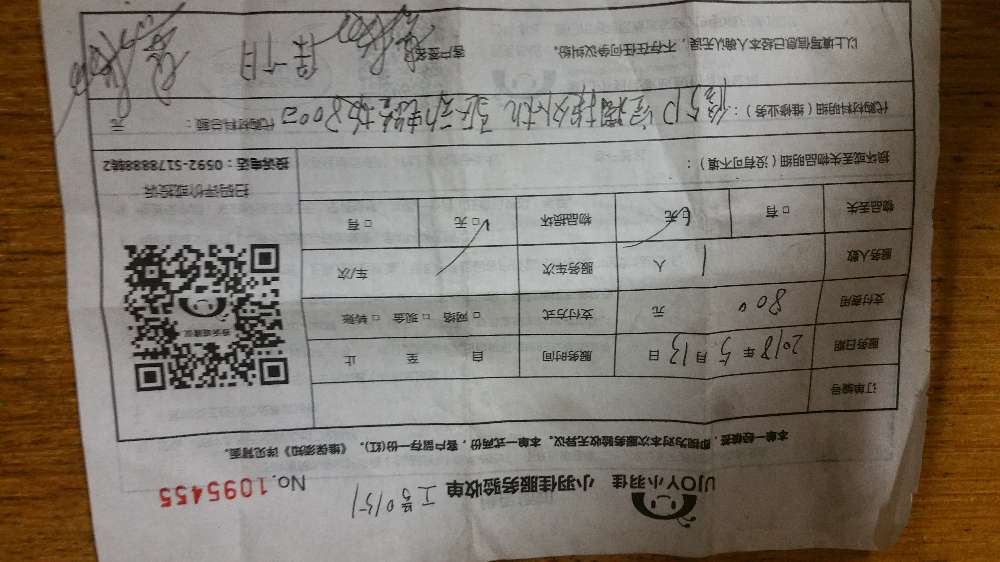 UJOY小羽佳 小羽佳服务验收单 工号0151 No.1095455
本单一经椄签，即视为对本次服务验收无异议。本单一式两份，客户留存一份(红)。《维保须知》详见背面。
订单编号
服务日期 2018年5月13日 服务时间 自 至 止
支付费用 800 元 支付方式 □ 网络 □ 现金 □ 转账
服务人数 1 人 服务车次 车/次
物品丢失 □ 有 □ 无 物品损坏 □ 无 □ 有
吾家唔建议
扫码评价或投诉
投诉电话：0592-5178888转2
损坏或丢失物品明细（没有可不填）：
代购材料明细（维修业务）：修5P空调 外机 代购材料总额： 元
以上填写信息已经本人确认无误，不存在任何争议纠纷。 客户签名 保一个月